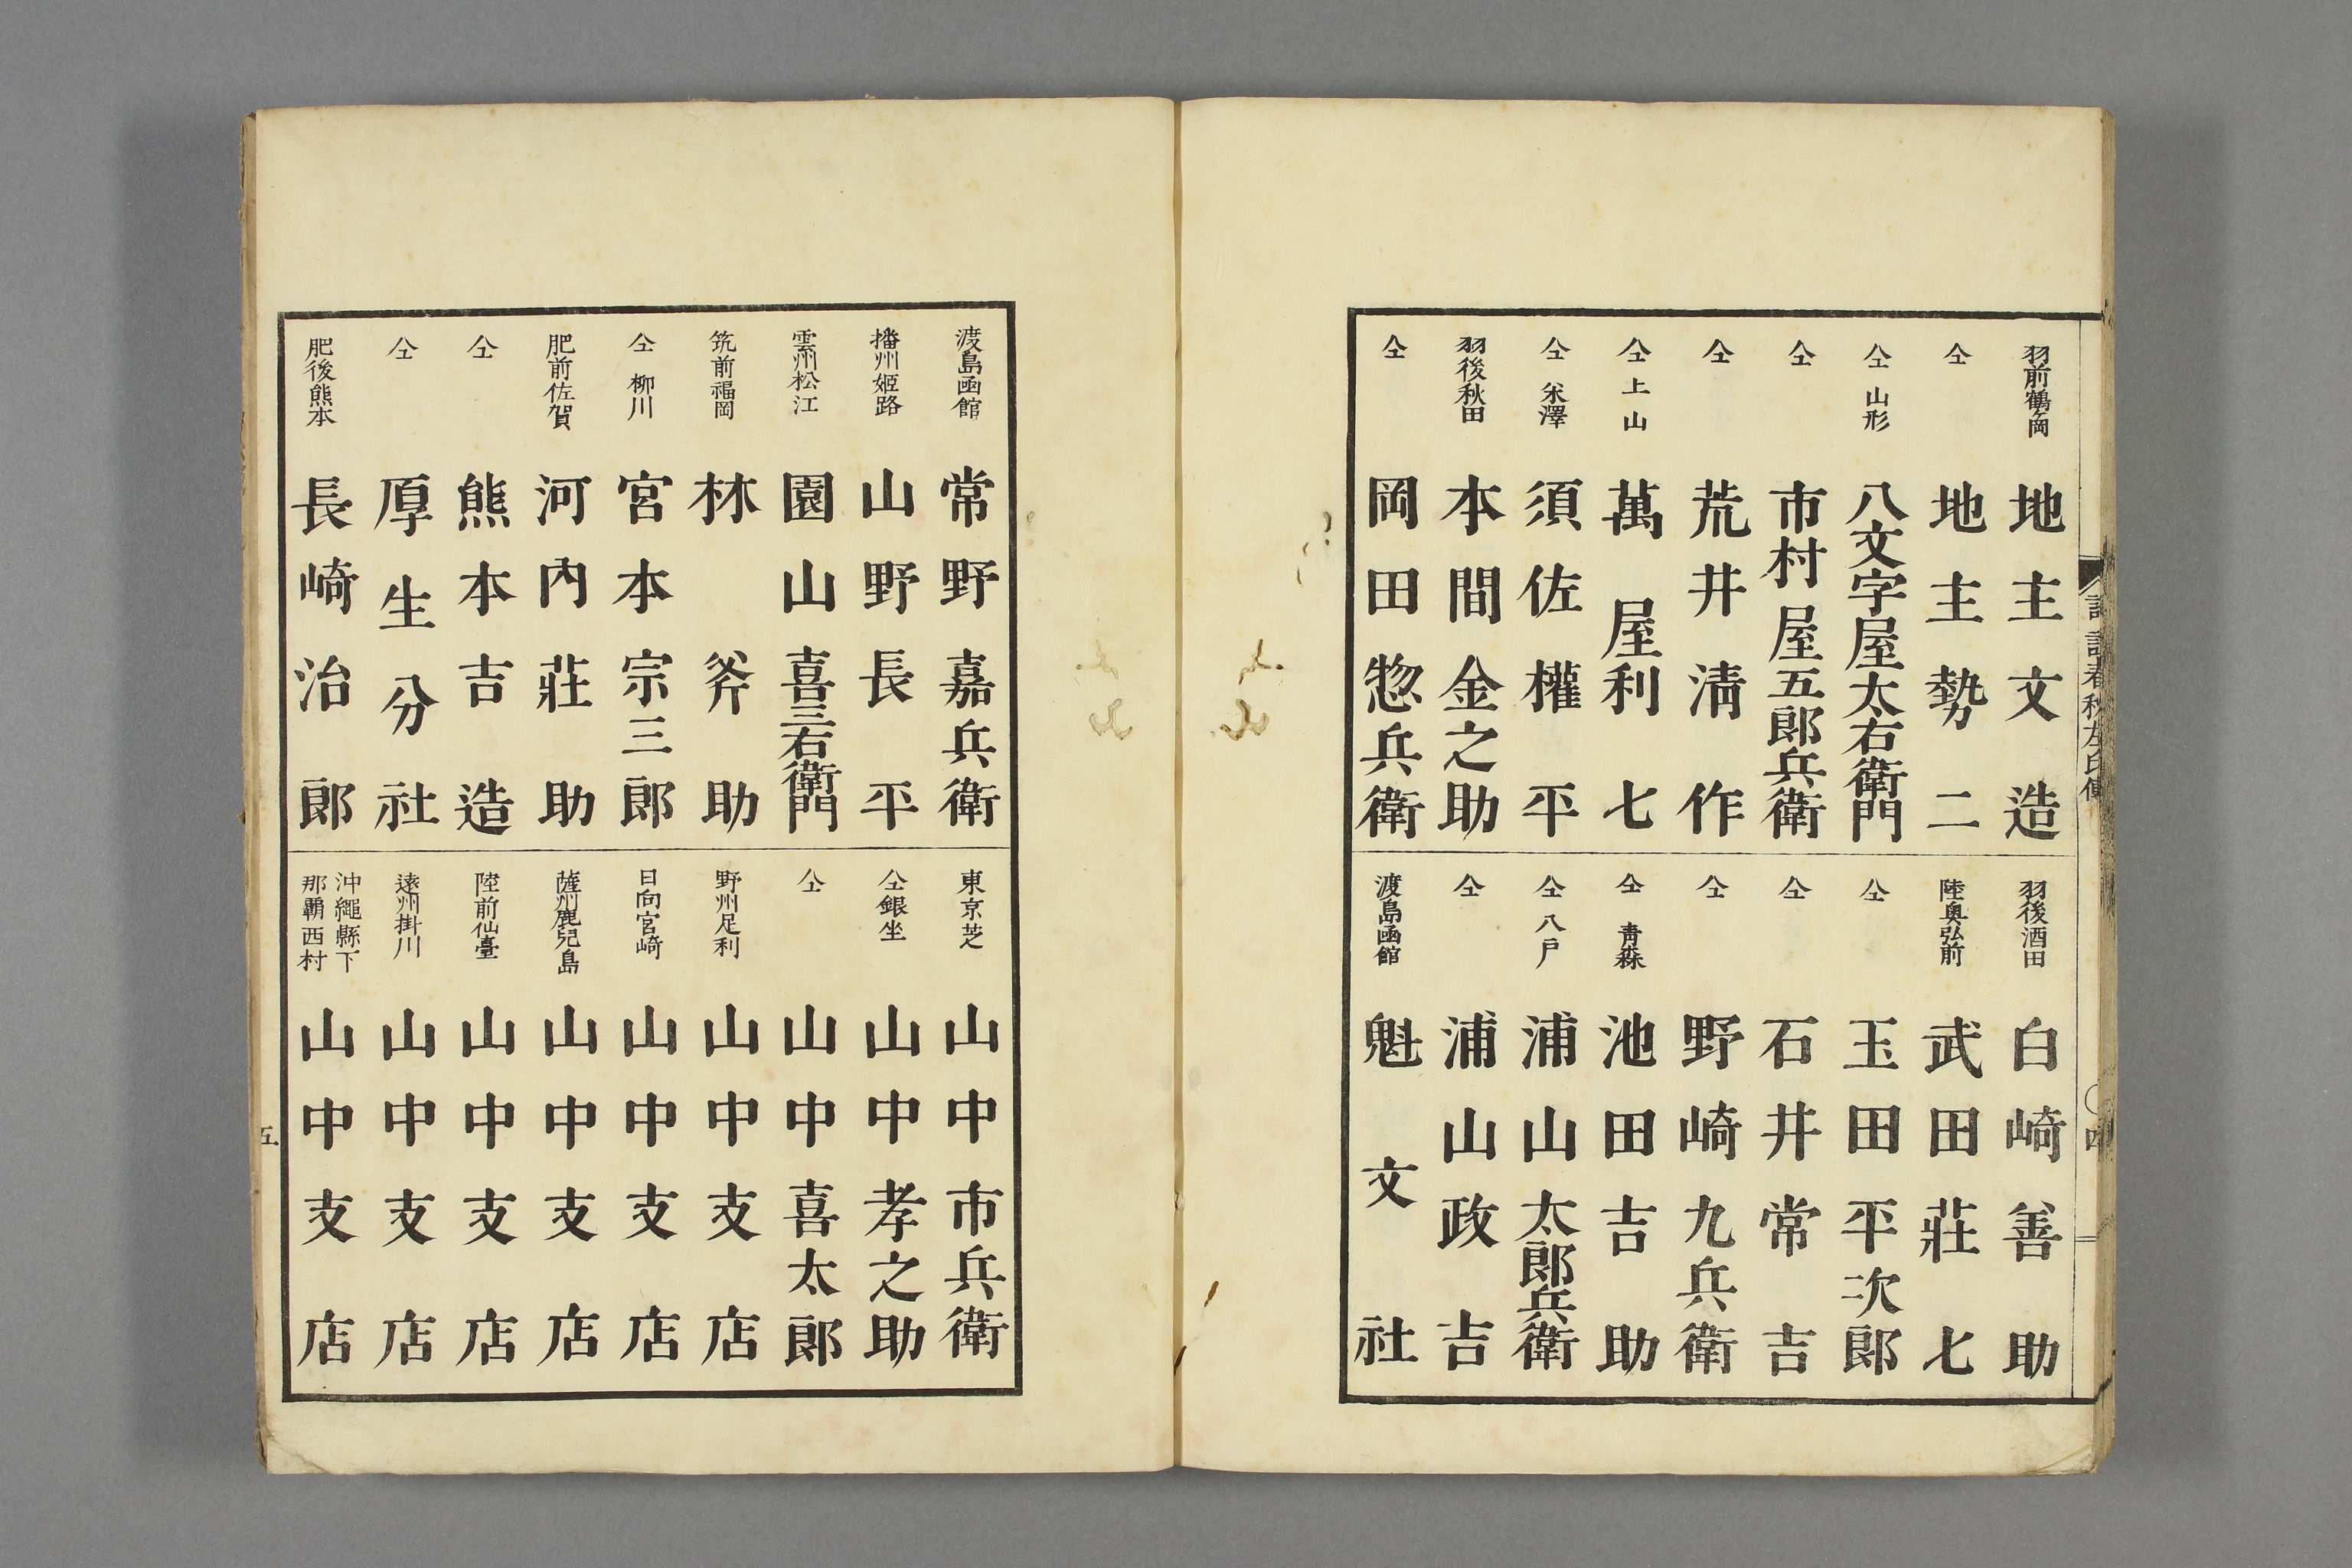 羽前鶴岡 地主文造
仝 地主勢二
仝 山形 八文字屋太右衛門
仝 市村屋五郎兵衛
仝 荒井清作
仝 上山 萬屋利七
仝 米澤 須佐權平
羽後秋田 本間金之助
仝 岡田惣兵衛
羽後酒田 白崎善助
陸奥弘前 武田莊七
仝 玉田平次郎
仝 石井常吉
仝 野崎九兵衛
仝 青森 池田吉助
仝 八戸 浦山太郎兵衛
仝 浦山政吉
渡島函館 魁文社
春秋左氏傳
四
渡島函館 常野嘉兵衛
播州姫路 山野長平
雲州松江 園山喜三右衛門
筑前福岡 林斧助
仝 柳川 宮本宗三郎
肥前佐賀 河内莊助
仝 熊本吉造
仝 厚生分社
肥後熊本 長崎治郎
東京芝 山中市兵衛
仝銀坐 山中孝之助
仝 山中喜太郎
野州足利 山中支店
日向宮崎 山中支店
薩州鹿兒島 山中支店
陸前仙臺 山中支店
遠州掛川 山中支店
沖繩縣下那覇西村 山中支店
五